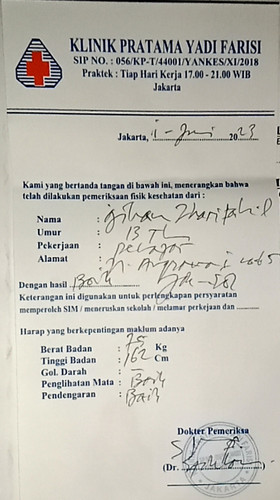 KLINIK PRATAMA YADI FARISI
SIP NO. : 056/KP-T/44001/YANKES/XI/2018
Praktek : Tiap Hari Kerja 17.00 - 21.00 WIB
Jakarta
Jakarta, 1 - Juni 2023
Kami yang bertanda tangan di bawah ini, menerangkan bahwa
telah dilakukan pemeriksaan fisik kesehatan dari :
Nama :
Umur : 13 Th
Pekerjaan : pelajar
Alamat : Jl.
Dengan hasil : Baik
Keterangan ini digunakan untuk perlengkapan persyaratan
memperoleh SIM / meneruskan sekolah / melamar perkejaan dan
Harap yang berkepentingan maklum adanya
Berat Badan : 75 Kg
Tinggi Badan : 162 Cm
Gol. Darah : -
Penglihatan Mata : Baik
Pendengaran : Baik
Dokter Pemeriksa
(Dr. )